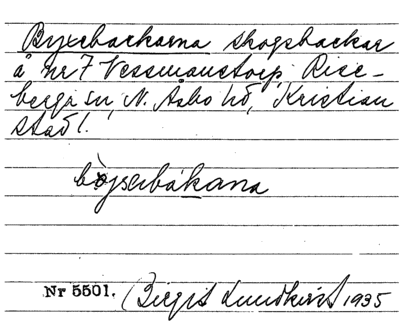 Byxebackarna skogsbackar
å nr 7 Vessmanstorp, Rise-
berga sn, N. Åsbo hd, Kristian
stad l.
bÿjsebákana
Nr 5501. Birgit Lundkvist 1935